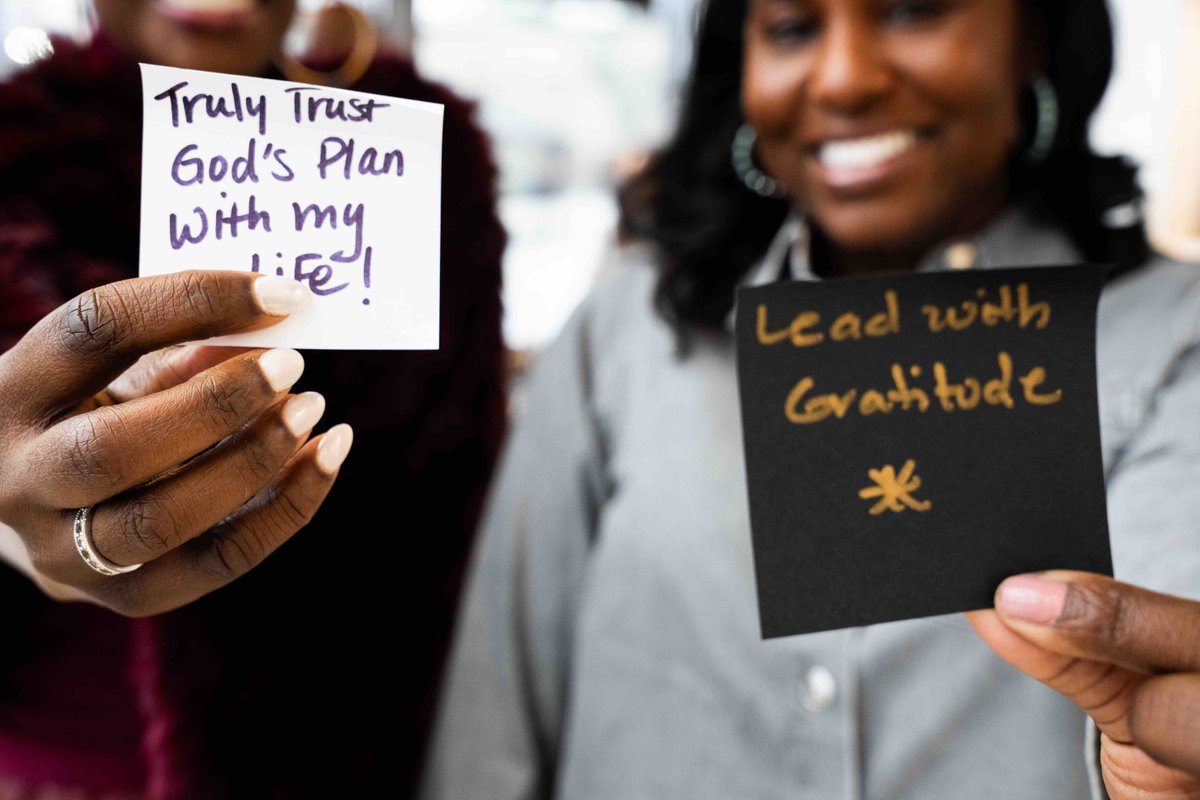 Truly Trust
God's Plan
with my
Life!
Lead with
Gratitude